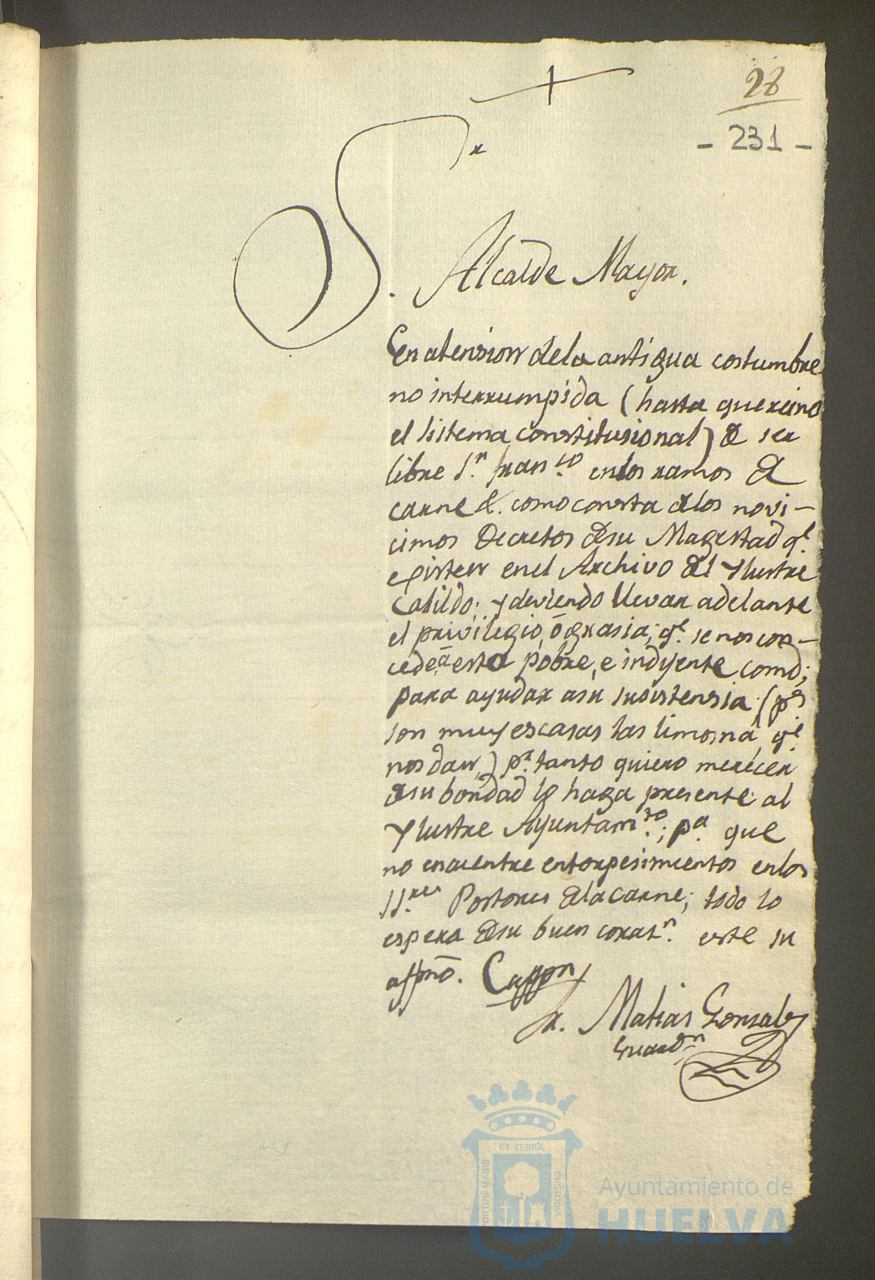 28
- 231 -
Sr. Alcalde Mayor.
En atension dela antigua costumbre
no interrumpida (hasta que reino
el sistema constitusional) de ser
libre Sn. Franco. enlos ramos de
carne &. como consta delos novi-
cimos Decretos desu Magestad ql.
existen enel Archivo del Ylustre
Cabildo; y deviendo llevar adelante
el privilegio, ó grasia, ql. se nos con-
cede, á esta pobre, e indijente comd;
para ayudar asu subsistensia (ps
son muy escasas las limosna, ql.
nos dan) pr. tanto quiero merecer
desu bondad lo haga presente al
Ylustre Ayuntamto.; pa que
no encuentre entorpesimientos enlos
SSres Postores dela carne; todo lo
espera desu buen corasn. este su
affmo. Cappn
Fr. Matias Gonzalez
Guardn
PORTUS MARIS
ET TERRÆ
CUSTODIA
Ayuntamiento de
HUELVA